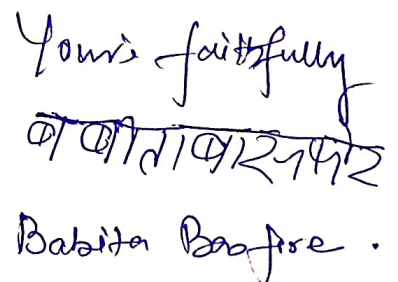 Your's faithfully
बबीता बासफोर
Babita Basfore.